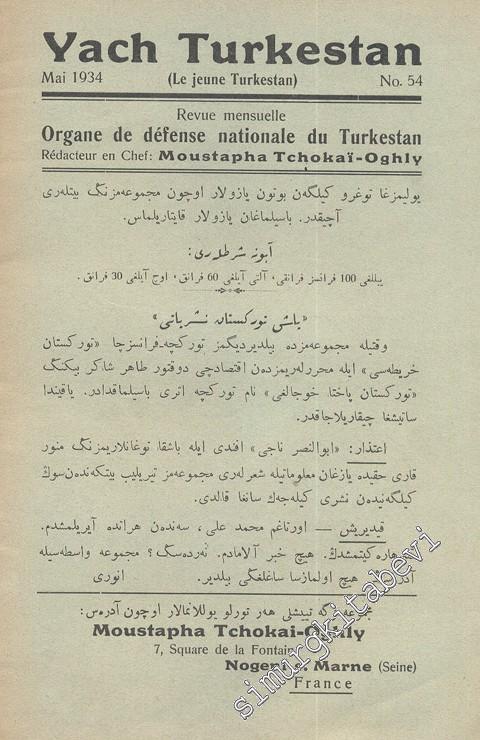 Yach Turkestan
Mai 1934 (Le jeune Turkestan) No. 54
Revue mensuelle
Organe de défense nationale du Turkestan
Rédacteur en Chef: Moustapha Tchokaï-Oghly
يوليمزغا توغرو كيلگەن بوتون يازولار اوچون مجموعەمزنڭ بيتلەرى
آچيقدر. باسيلماغان يازولار قايتاريلماس.
آبونه شرطلەرى:
ييللغى 100 فرانسز فرانقى، آلتى آيلغى 60 فرانق، اوچ آيلغى 30 فرانق.
«ياش توركستان نشرياتى»
وقتيله مجموعەمزده بيلديرديگمز توركچه-فرانسزچا «توركستان
خريطەسى» ايله محررلەريمزدەن اقتصادچى دوقتور طاهر شاكر بيكنڭ
«توركستان پاختا خوجالغى» نام توركچه اثرى باسيلماقدادر. ياقيندا
ساتيشغا چيقاريلاجاقدر.
اعتذار: «ابوالنصر ناجى» افندى ايله باشقا توغانلاريمزنڭ منور
قارى حقيده يازغان معلوماتيله شعرلەرى مجموعەمز تيريليب بيتكەندەن‌سوڭ
كيلگەنيدەن نشرى كيلەجەك سانغا قالدى.
قيديريش — اورتاغم محمد على، سەندەن هراتده آيريلمشدم.
كيتمشدڭ. هيچ خبر آلامادم. نەردەسڭ؟ مجموعه واسطەسيله
هيچ اولمازسا ساغلغڭى بيلدير. انورى
تيشلى هەر تورلو يوللانمالار اوچون آدرەس:
Moustapha Tchokai-Oghly
7, Square de la Fontaine
Nogent s. Marne (Seine)
France
simurgkitabevi